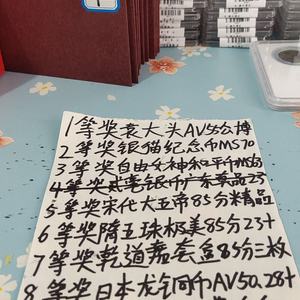 1等奖袁大头AV55公博
2等奖银猫纪念币MS70
3等奖自由女神和平币MS63
4等奖 银币广东 23
5等奖宋代大五帝85分精品
6等奖隋五珠极美85分23+
7等奖乾道嘉套盒85分三枚
8等奖日本龙铜币AV50.28+